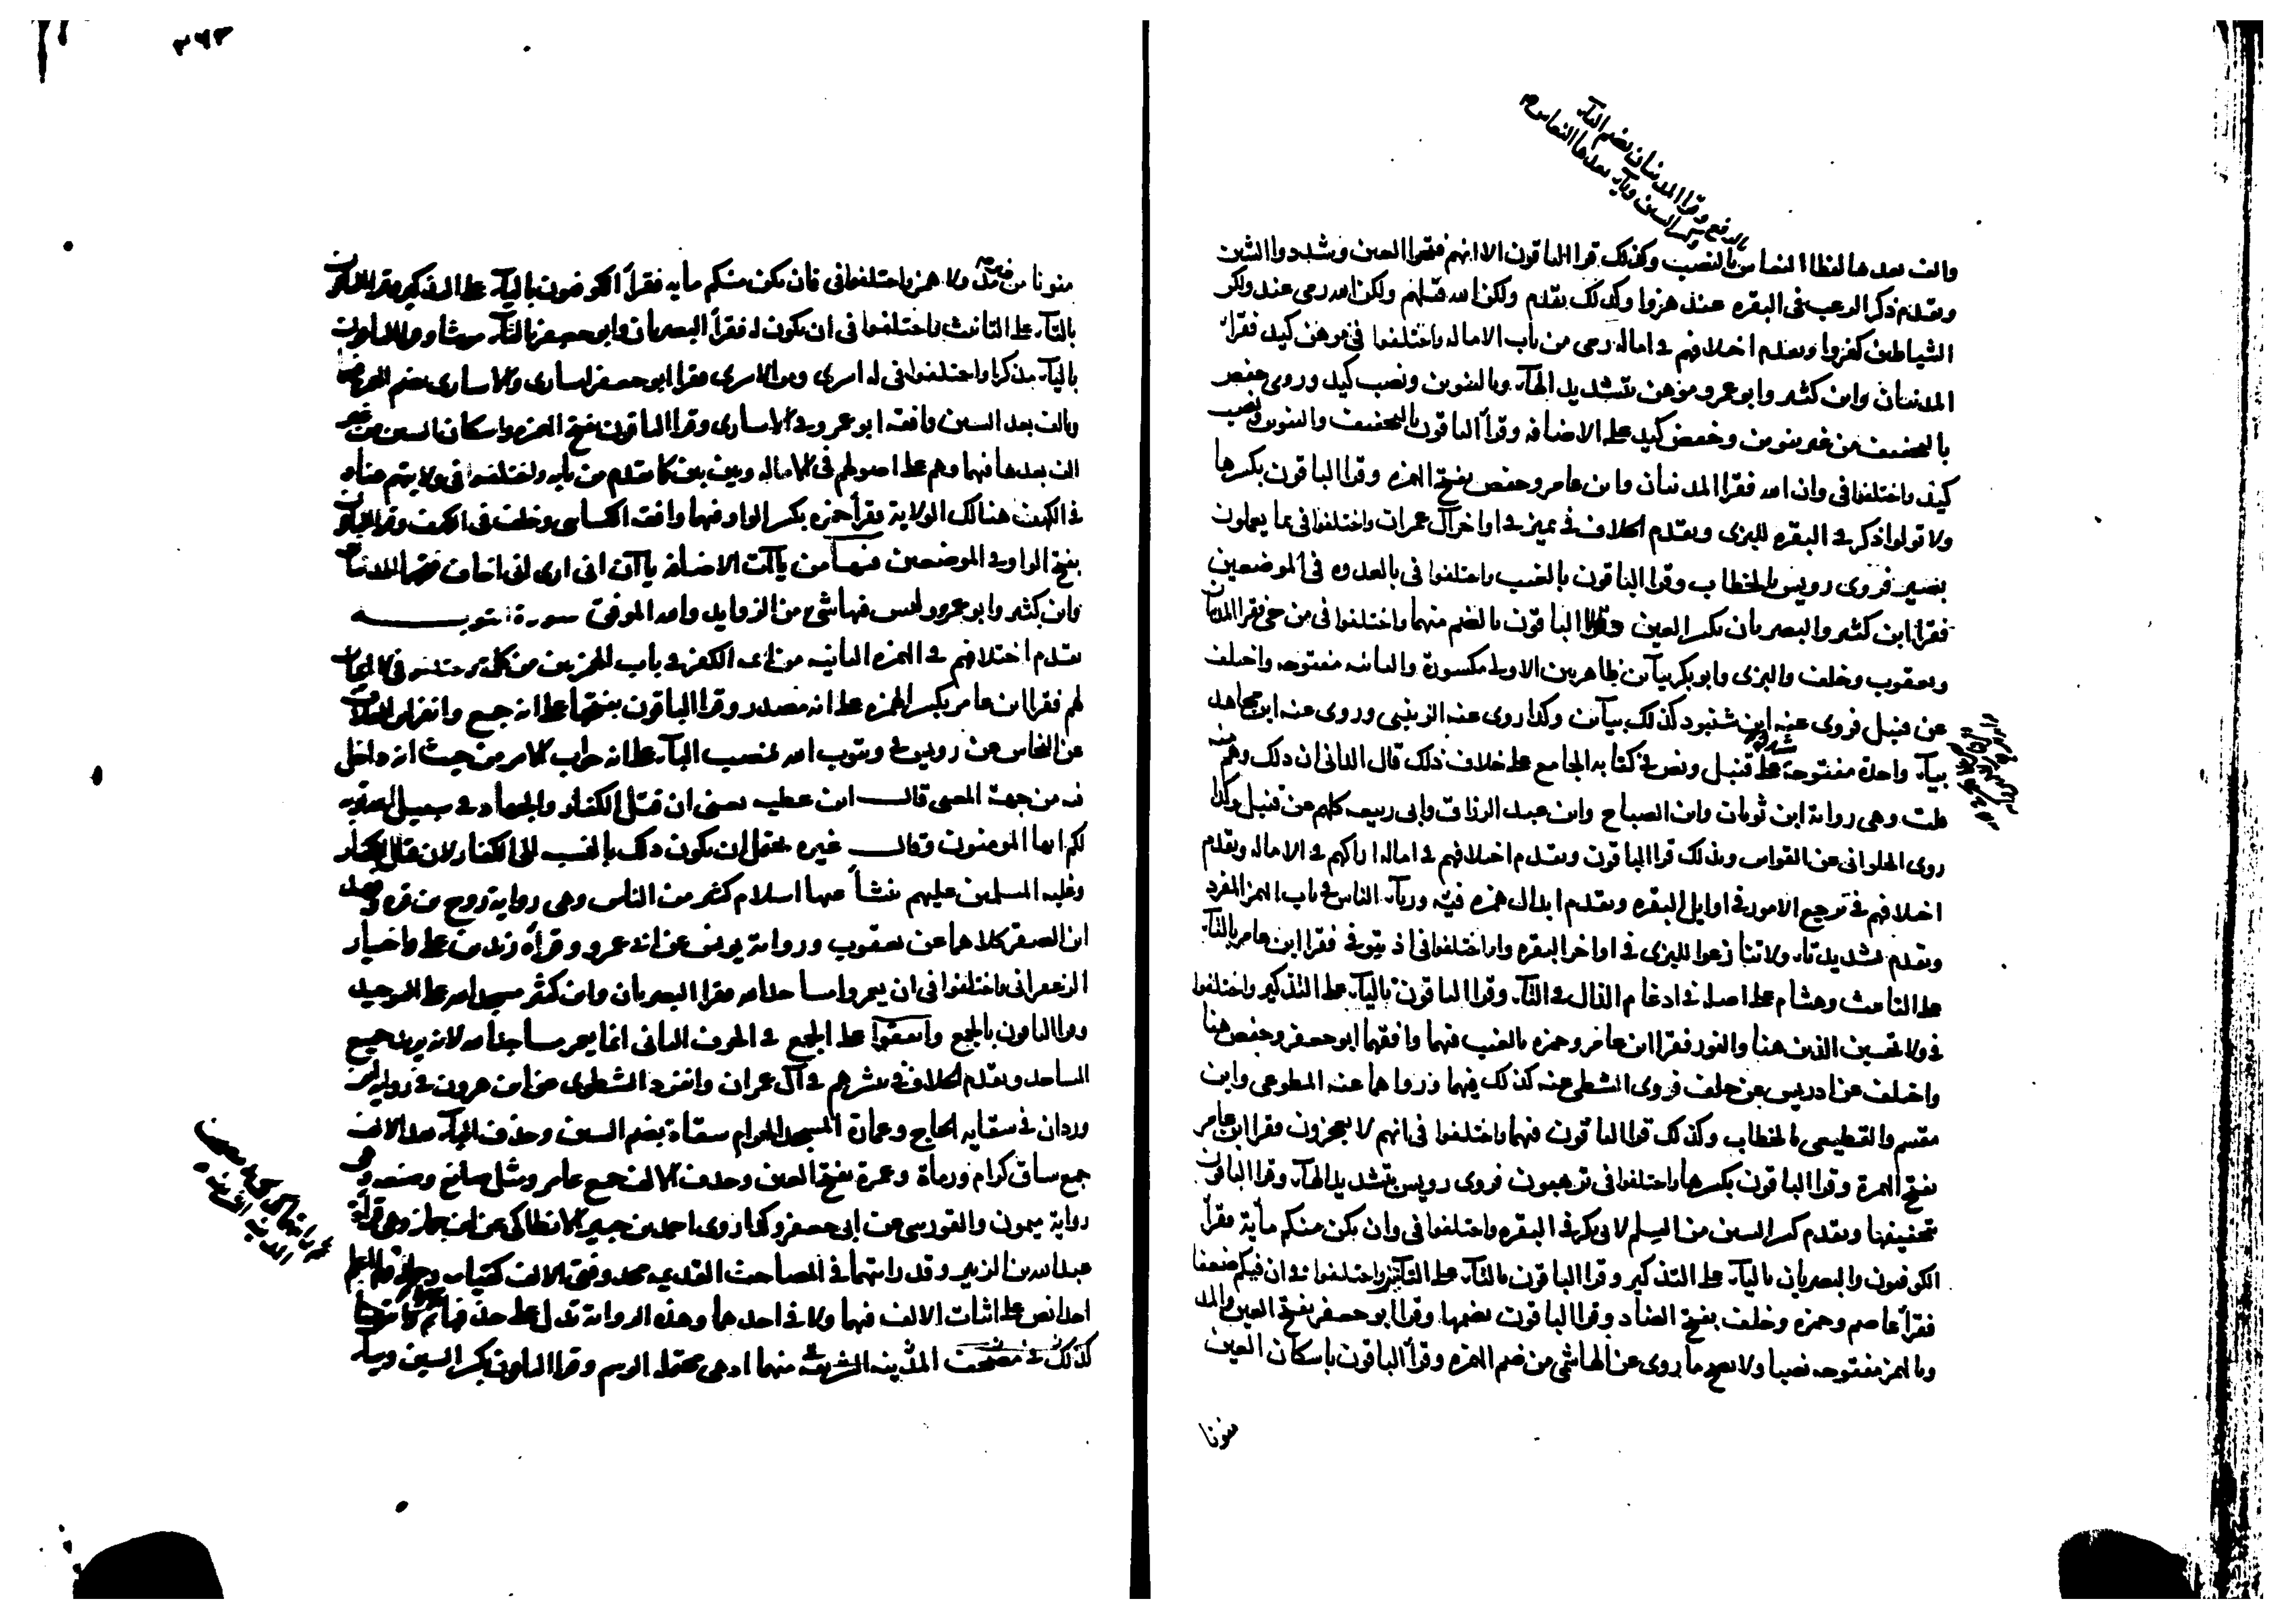 بالرفع وقرا المدنيان بضم اليآء
وكسر السين ويآء بعدها النعاس
والف بعدها لفظا النعاس بالنصب وكذلك قرا الباقون الا انهم فتحوا الغين وشددوا الشين
وتقدم ذكر الرعب فى البقره عند هزوا وكذلك تقدم ولكن الله قتلهم ولكن الله رمى عند ولكن
الشياطين كفروا وتقدم اختلافهم فى اماله رمى من باب الاماله واختلفوا فى موهن كيد فقرا
المدنيان وابن كثير وابو عمرو موهن بتشديد الهآء وبالتنوين ونصب كيد وروى حفص
بالتخفيف من غير تنوين وخفض كيد على الاضافه وقرأ الباقون بالتخفيف والتنوين ونصب
كيد واختلفوا فى وان الله فقرا المدنيان وابن عامر وحفص بفتح الهمزه وقرا الباقون بكسرها
ولا تولوا ذكر فى البقره للبزى وتقدم الخلاف فى يميز فى اواخر آل عمران واختلفوا فى بما يعملون
بصير فروى رويس بالخطاب وقرا الباقون بالغيب واختلفوا فى بالعدوه فى الموضعين
فقرا ابن كثير والبصريان بكسر العين وقرا الباقون بالضم منهما واختلفوا فى من حى فقرا المدنيان
ويعقوب وخلف والبزى وابو بكر بيآين ظاهرين الاولى مكسورة والثانيه مفتوحه واختلف
عن قنبل فروى عنه ابن شنبوذ كذلك بيآين وكذا روى عنه الزينبى وروى عنه ابن مجاهد
بيآء واحدة مفتوحة مشددة نص على قنبل ونص فى كتابه الجامع على خلاف ذلك قال الدانى ان ذلك وهم منه
قلت وهى رواية ابن ثوبان وابن الصباح وابن عبد الرزاق وابى ربيعه كلهم عن قنبل وكذا
روى الحلوانى عن القواس وبذلك قرا الباقون وتقدم اختلافهم فى اماله اراكهم فى الاماله وتقدم
اختلافهم فى ترجع الامور فى اوايل البقره وتقدم ابدال همزه فيه وريآء الناس فى باب الهمز المفرد
وتقدم تشديد تآء ولا تنازعوا للبزى فى اواخر البقره واختلفوا فى اذ يتوفى فقرا ابن عامر بالتآء
على التانيث وهشام على اصله فى ادغام الذال فى التآء وقرا الباقون باليآء على التذكير واختلفوا
فى ولا تحسبن الذين هنا والنور فقرا ابن عامر وحمزه بالغيب فيهما وافقهما ابو جعفر وحفص هنا
واختلف عن ادريس عن خلف فروى الشطى عنه كذلك فيهما ورواهما عنه المطوعى وابن
مقسم والقطيعى بالخطاب وكذلك قرا الباقون فيهما واختلفوا فى انهم لا يعجزون فقرا ابن عامر
بفتح الهمزة وقرا الباقون بكسرها واختلفوا فى ترهبون فروى رويس بتشديد الهآء وقرا الباقون
بتخفيفها وتقدم كسر السين من السلم لابى بكر فى البقره واختلفوا فى وان يكن منكم مأية فقرأ
الكوفيون والبصريان باليآء على التذكير وقرا الباقون بالتآء على التأنيث واختلفوا فى ان فيكم ضعفا
فقرأ عاصم وحمزه وخلف بفتح الضاد وقرا الباقون بضمها وقرا ابو جعفر بفتح العين والمد
وبالهمز مفتوحه نصبا ولا يصح ما روى عن الهاشمى من ضم الهمزه وقرأ الباقون باسكان العين
منونا
٣٦٣
منونا من غير مد ولا همز واختلفوا فى فان يكن منكم مأيه فقرأ الكوفيون باليآء على التذكير وقرا الباقون
بالتآء على التانيث واختلفوا فى ان يكون له فقرأ البصريان وابو جعفر بالتآء مونثا وقرا الباقون
باليآء مذكرا واختلفوا فى له اسرى ومن الاسرى فقرا ابو جعفر اسارى والاسارى بضم الهمزه فيهما
وبالف بعد السين وافقه ابو عمرو فى الاسارى وقرا الباقون بفتح الهمزه واسكان السين من غير
الف بعدها فيهما وهم على اصولهم فى الاماله وبين بين كما تقدم من بابه واختلفوا فى ولايتهم هنا
فى الكهف هنالك الولاية فقرأ حمزه بكسر الواو فيهما وافقه الكسائى وخلف فى الكهف وقرا الباقون
بفتح الواو فى الموضعين فيها من ياآت الاضافه ياآن انى ارى انى اخاف فتحهما المدنيان
وابن كثير وابو عمرو وليس فيها شئ من الزوايد والله الموفق سورة التوبه
تقدم اختلافهم فى الهمزه الثانيه من ائمه الكفر فى باب الهمزتين من كلمة واختلفوا فى لا ايمان
لهم فقرا ابن عامر بكسر الهمزه على انه مصدر وقرا الباقون بفتحها على انه جمع وانفرد ابن العلاف
عن النخاس عن رويس فى ويتوب الله بنصب البآء على انه جواب الامر من حيث انه داخل
فيه من جهة المعنى قال ابن عطيه يعنى ان قتل الكفار والجهاد فى سبيل الله توبه
لكم ايها المومنون وقال غيره يحتمل ان يكون ذلك بالنسبه الى الكفار لان قتال الكفار
وغلبه المسلمين عليهم ينشأ عنها اسلام كثير من الناس وهى رواية روح بن قره وفهد
ابن الصقر كلاهما عن يعقوب ورواية يونس عن ابى عمرو وقرأه زيد بن على واختيار
الزعفرانى واختلفوا فى ان يعمروا مساجد الله فقرا البصريان وابن كثير مسجد الله على التوحيد
وقرا الباقون بالجمع واتفقوا على الجمع فى الحرف الثانى انما يعمر مساجد الله لانه يريد جميع
المساجد وتقدم الخلاف فى يبشرهم فى آل عمران وانفرد الشطوى عن ابن هرون فى رواية ابن
وردان فى سقايه الحاج وعمارة المسجد الحرام سقاة بضم السين وحذف اليآء بعد الالف
جمع ساق كرام ورماة وعمرة بفتح العين وحذف الالف جمع عامر ومثل صانع وصنعه وهى
رواية ميمون والقورسى عن ابى جعفر وكذا روى احمد بن جبير الانطاكى عن ابن جماز وهى قرآة
عبد الله بن الزبير وقد رايتهما فى المصاحف القديمه محذوفتى الالف كقيامه وجمالة ثم لم اعلم
احدا نص على اثبات الالف فيهما ولا فى احدهما وهذه الرواية تدل على حذفها
كذلك فى مصحف المدينه الشريفه منهما اذ هى محتمله الرسم وقرا الباقون بكسر السين وبيآء